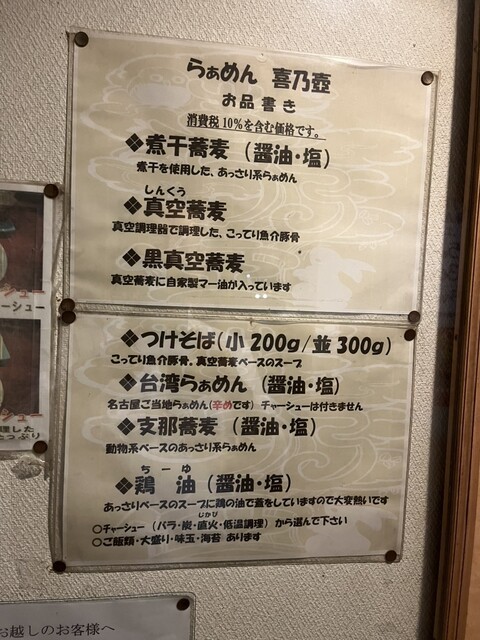 らぁめん 喜乃壺
お品書き
消費税10%を含む価格です。
❖煮干蕎麦 (醤油・塩)
煮干を使用した、あっさり系らぁめん
しんくう
❖真空蕎麦
真空調理器で調理した、こってり魚介豚骨
❖黒真空蕎麦
真空蕎麦に自家製マー油が入っています
❖つけそば(小 200g/並 300g)
こってり魚介豚骨、真空蕎麦ベースのスープ
❖台湾らぁめん (醤油・塩)
名古屋ご当地らぁめん(辛めです) チャーシューは付きません
❖支那蕎麦 (醤油・塩)
動物系ベースのあっさり系らぁめん
ちー ゆ
❖鶏 油 (醤油・塩)
あっさりベースのスープに鶏の油で蓋をしていますので大変熱いです
じかび
○チャーシュー (バラ・炭・直火・低温調理) から選んで下さい
○ご飯類・大盛り・味玉・海苔 あります
シュー
ーシュー
シュー
理した
たっぷり
お越しのお客様へ